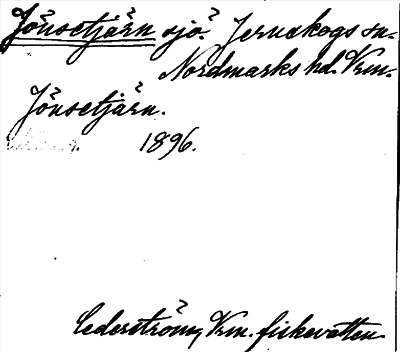 Jönsetjärn sjö. Jernskogs sn.
Nordmarks hd. Vrm.
Jönsetjärn.
1896.
Cederström, Vrm. fiskevatten